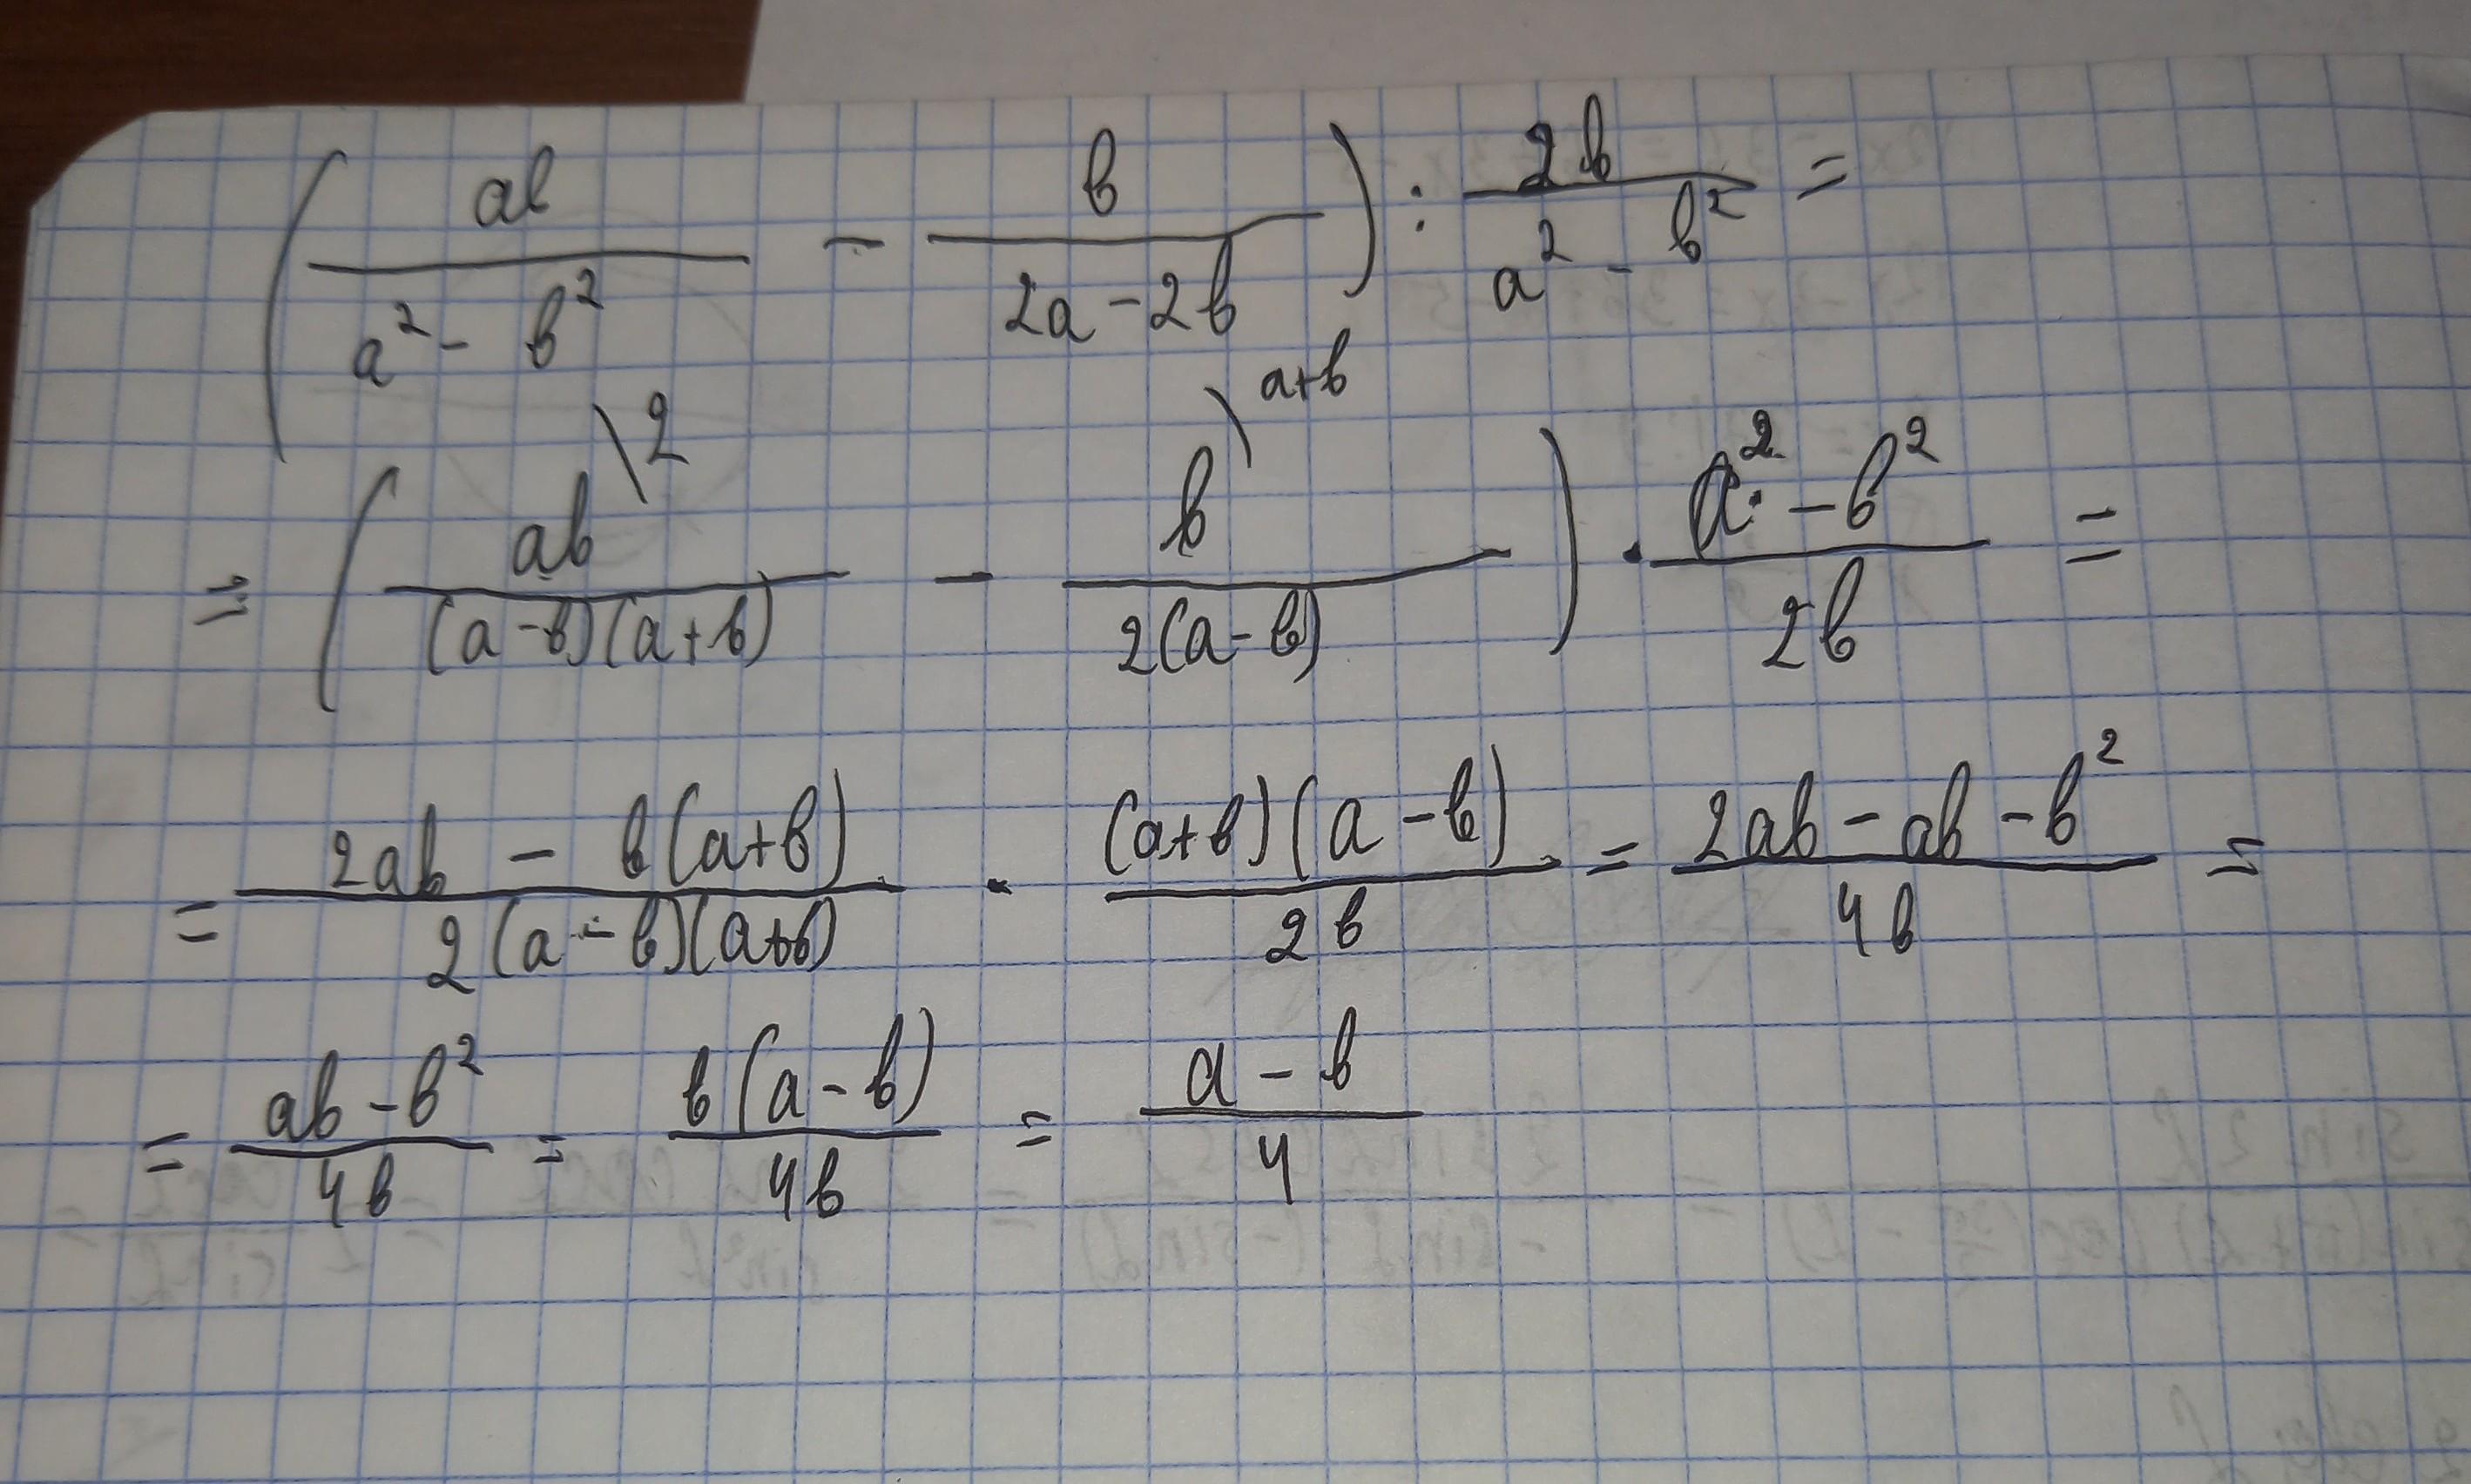 (ab/(a² - b²) - b/(2a - 2b)) : 2b/(a² - b²) =
= (ab\2/((a - b)(a + b)) - b\a+b/(2(a - b))) · (a² - b²)/2b =
= (2ab - b(a+b))/(2(a - b)(a+b)) · ((a+b)(a - b))/2b = (2ab - ab - b²)/4b =
= (ab - b²)/4b = b(a - b)/4b = (a - b)/4